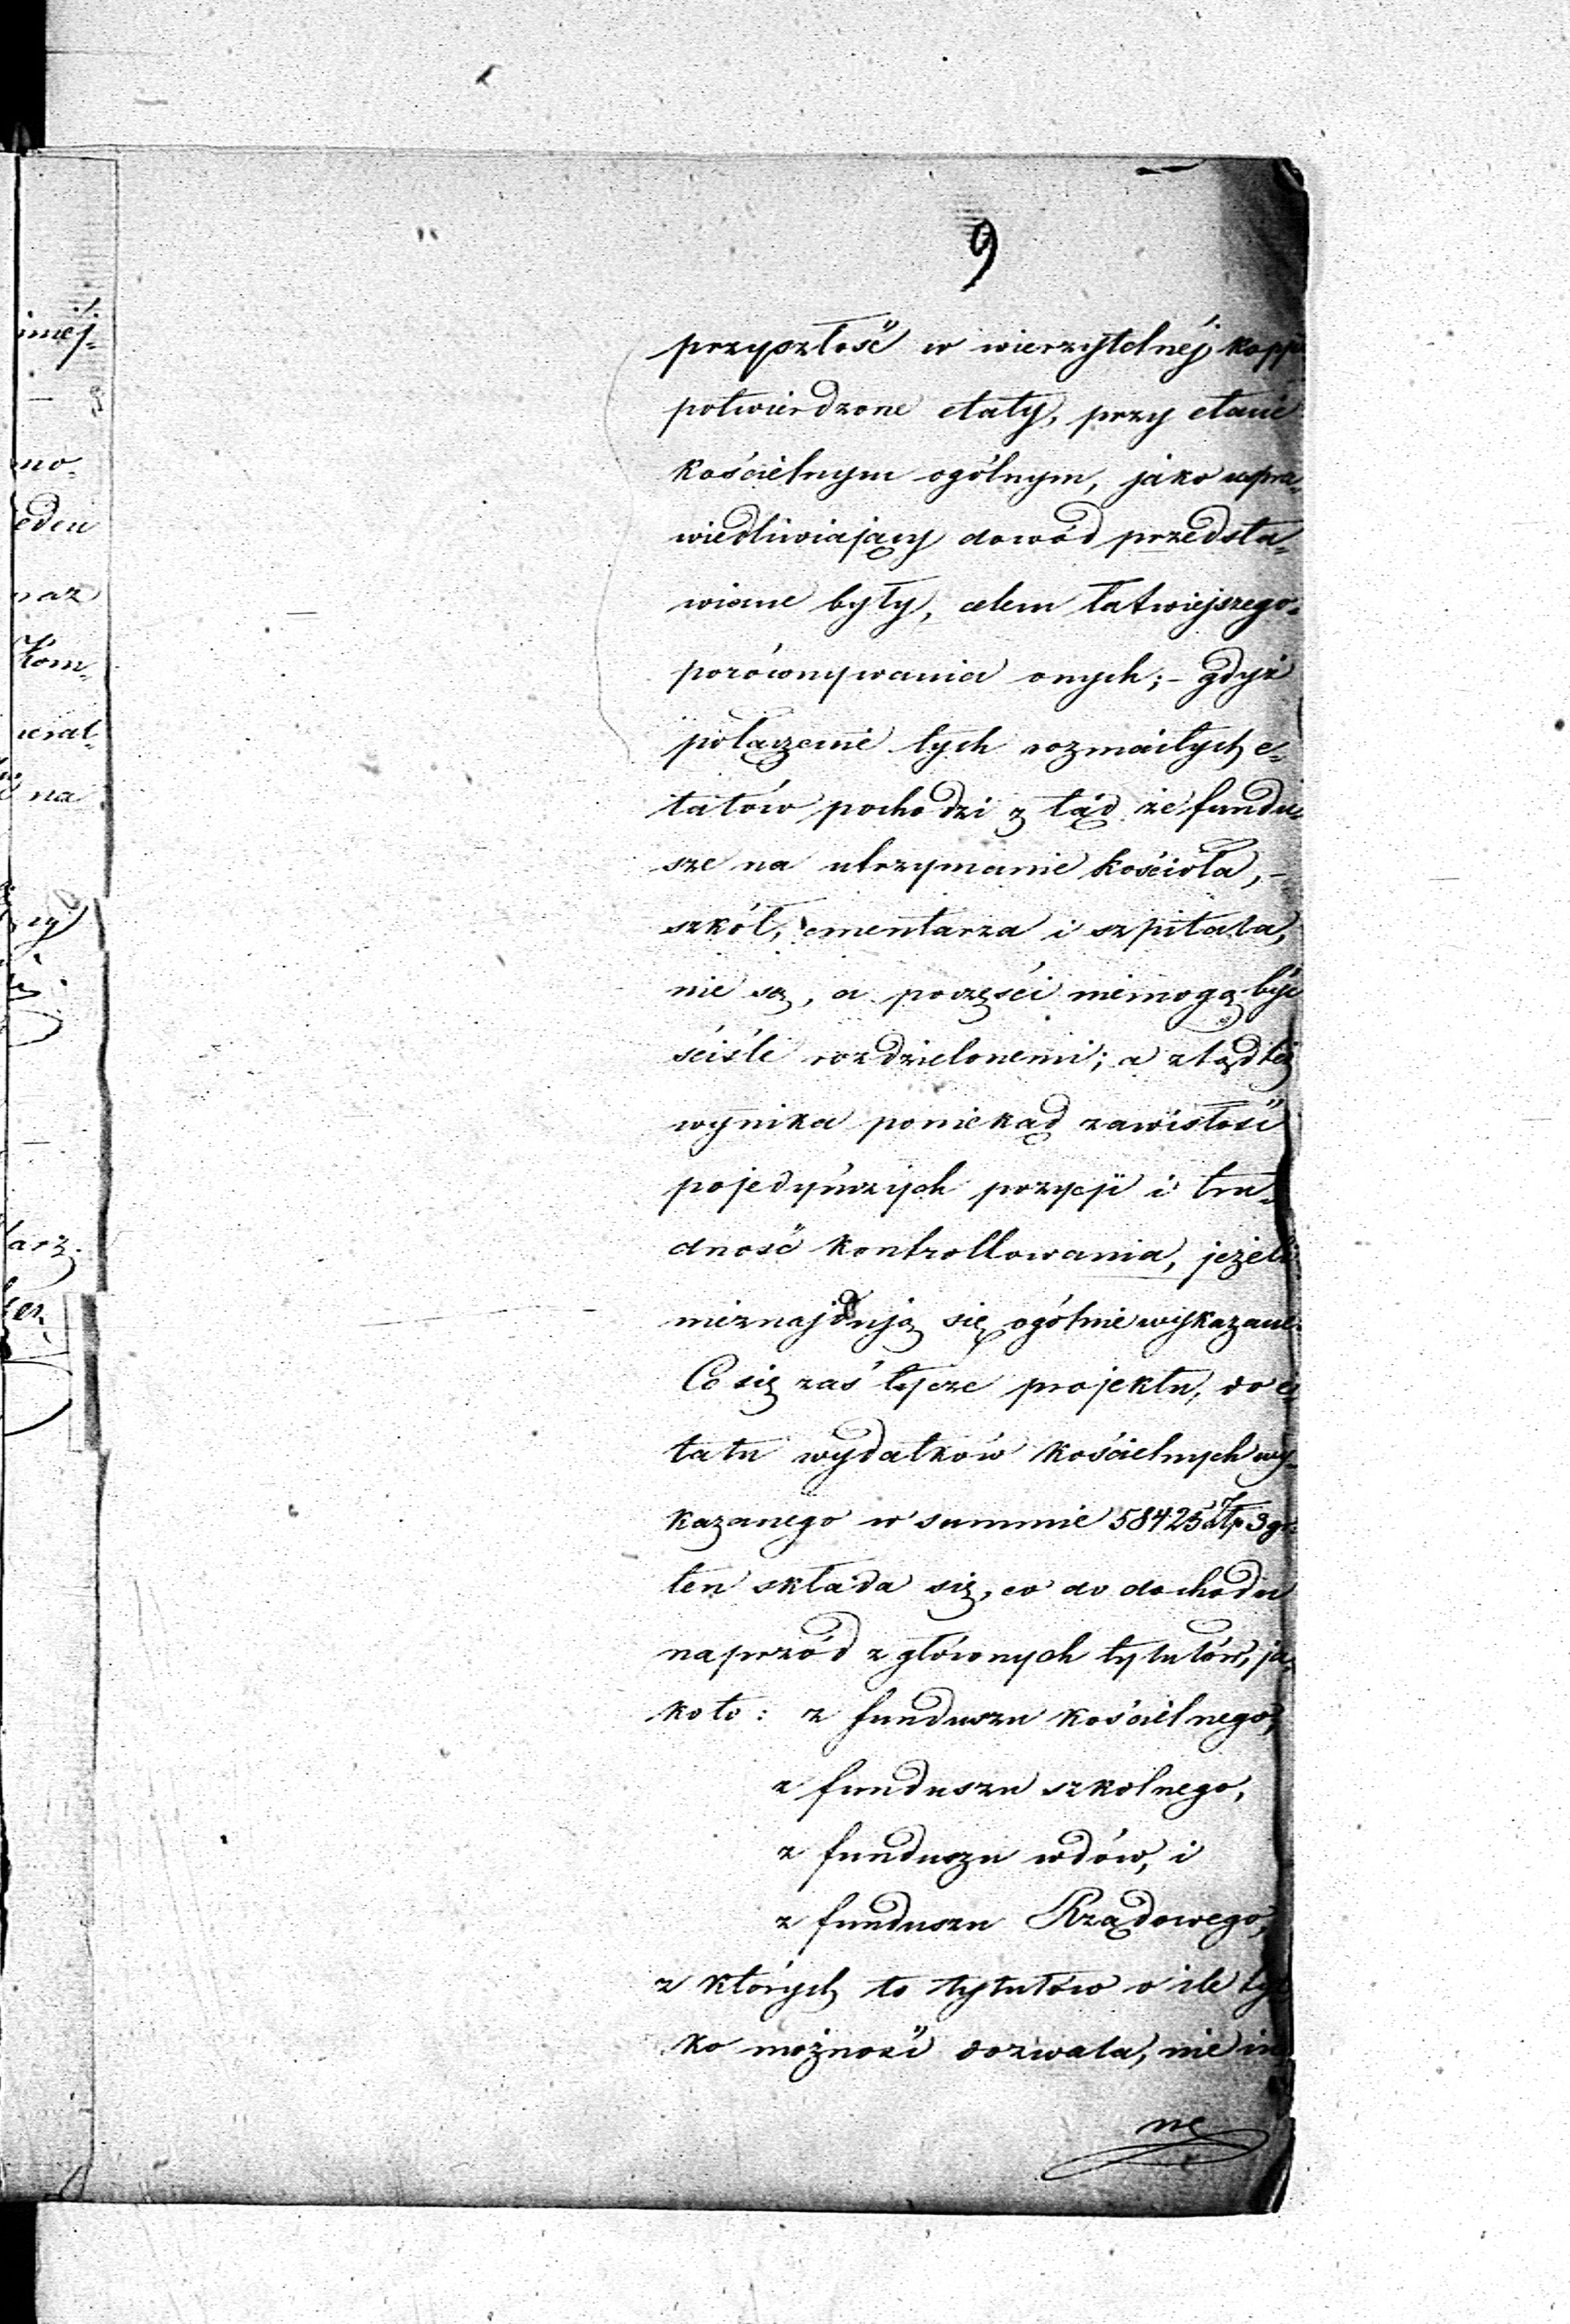 imej-
no-
eden
raz
Kom-
neral-
na
ny
larz.
9
przyszłość w wierzytelnéj kopji
potwierdzone etaty, przy etacie
kościelnym ogólnym, jako uspra-
wiedliwiający dowód przedsta-
wione były, celem łatwiejszego
porównywania onych; – gdyż
połączenie tych rozmaitych e-
tatów pochodzi z tąd że fundu-
sze na utrzymanie kościoła, –
szkół, cmentarza i szpitala,
nie są, a poczęści niemogą być
ściśle rozdzielonemi; a ztąd téż
wynika poniekąd zawisłość
pojedyńczych pozycji i tru-
dność kontrollowania, jeżeli
nieznajdują się ogólnie wykazane.
Co się zaś tycze projektu, do e-
tatu wydatków kościelnych wy-
kazanego w summie 58425 Złp 3 gr.
ten składa się, co do dochodu
naprzód z głównych tytułów, ja-
koto: z funduszu kościelnego,
z funduszu szkolnego,
z funduszu wdów, i
z funduszu Rządowego,
z których to tytułów o ile tyl
ko możność dozwala, nie in
ne